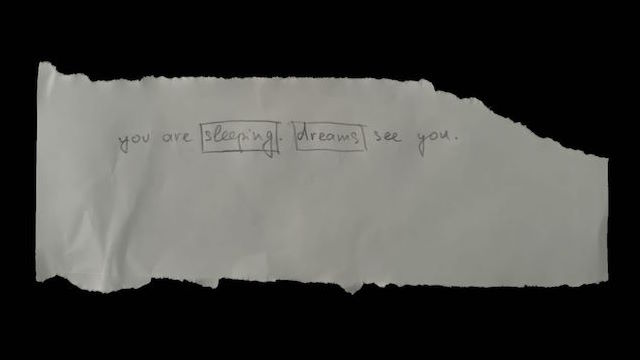 you are sleeping. dreams see you.